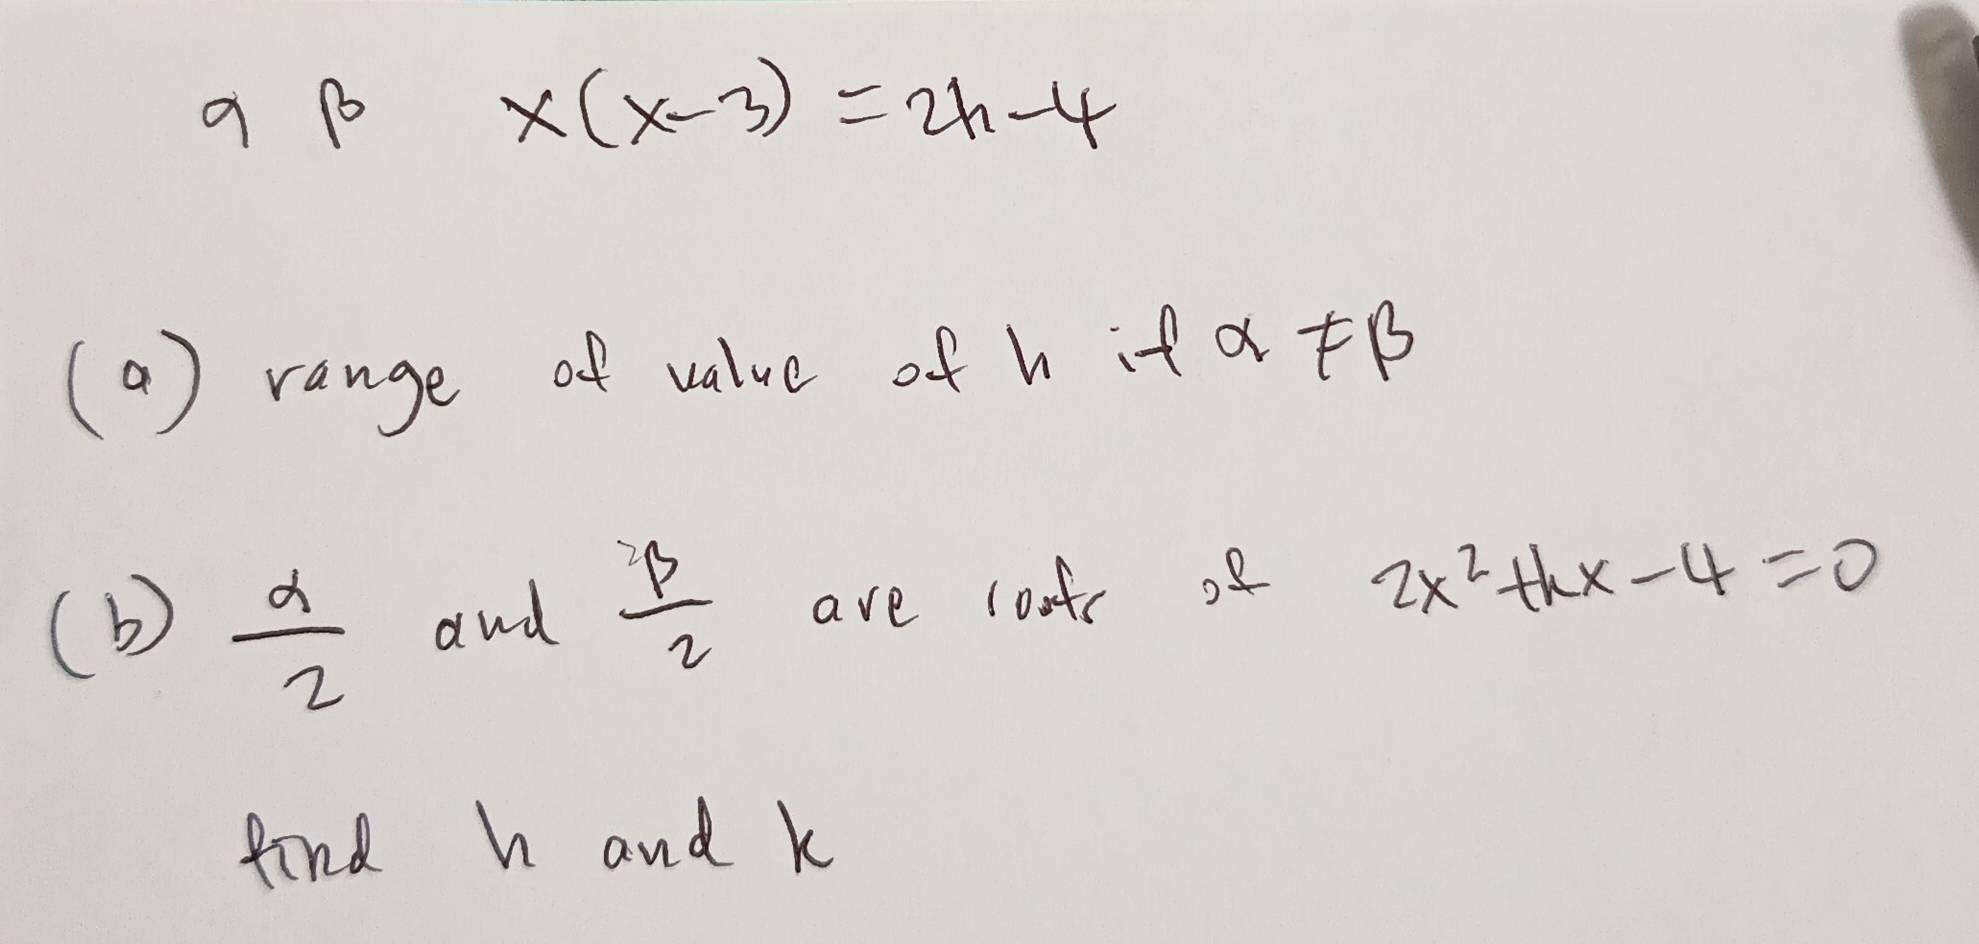 α β x(x-3) = 2h-4
(a) range of value of h if α ≠ β
(b) α/2 and β/2 are roots of 2x²+kx-4=0
find h and k